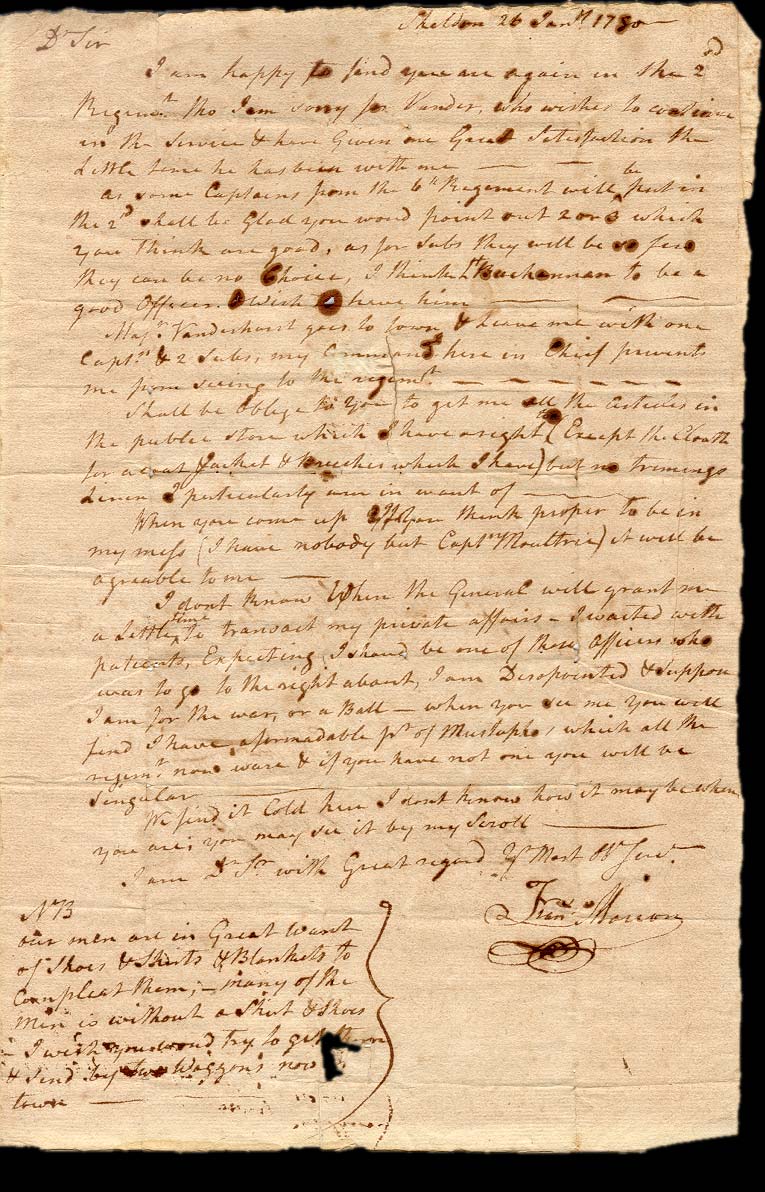 Sheldon 26 Janʸ 1780
Dʳ Sir
I am happy to find you are again in the 2ᵈ
Regimᵗ tho I am sorry for Vander, who wishes to continue
in the Service & have Given me Great Satisfaction the
Little time he has been with me
as some Captains from the 6ᵗʰ Regement will be put in
the 2ᵈ shall be Glad you woud point out 2 or 3 which
you think are good, as for Subs they will be so few
they can be no Choice, I think Lᵗ Buchannan to be a
good Officer. I Wish to have him
Majʳ Vanderhorst goes to town & Leave me with one
Captⁿ & 2 Subs, my Command here in Chief prevents
me from seeing to the regimᵗ
Shall be Oblige to you to get me all the articles in
the public store which I have a right to (Except the Cloath
for a Coat Jacket & Breeches which I have) but no trimings
Linen I particularly am in want of
When you come up If you think proper to be in
my mess (I have nobody but Captⁿ Moultrie) it will be
agreable to me
I dont Know When the General will grant me
a Little time to transact my private affairs - I waited with
patients, Expecting I shoud be one of those Officers who
was to go to the right about, I am Disopointed & Suppose
I am for the war, or a Ball - when you see me you will
find I have a formadable pʳ of Mustaphos, which all the
regimᵗ now ware & if you have not one you will be
Singular
We find it Cold here I dont know how it may be when
you are; you may see it by my Scroll
I am Dʳ Sʳ with Great regard Yʳ Most Obᵗ Servᵗ
Franˢ Marion
NB
our men are in Great Want
of Shoes & Shirts & Blankets to
Compleat them; - many of the
Men is without a Shirt & Shoes
- I wish you woud try to get them
& Send by two Waggons now
town